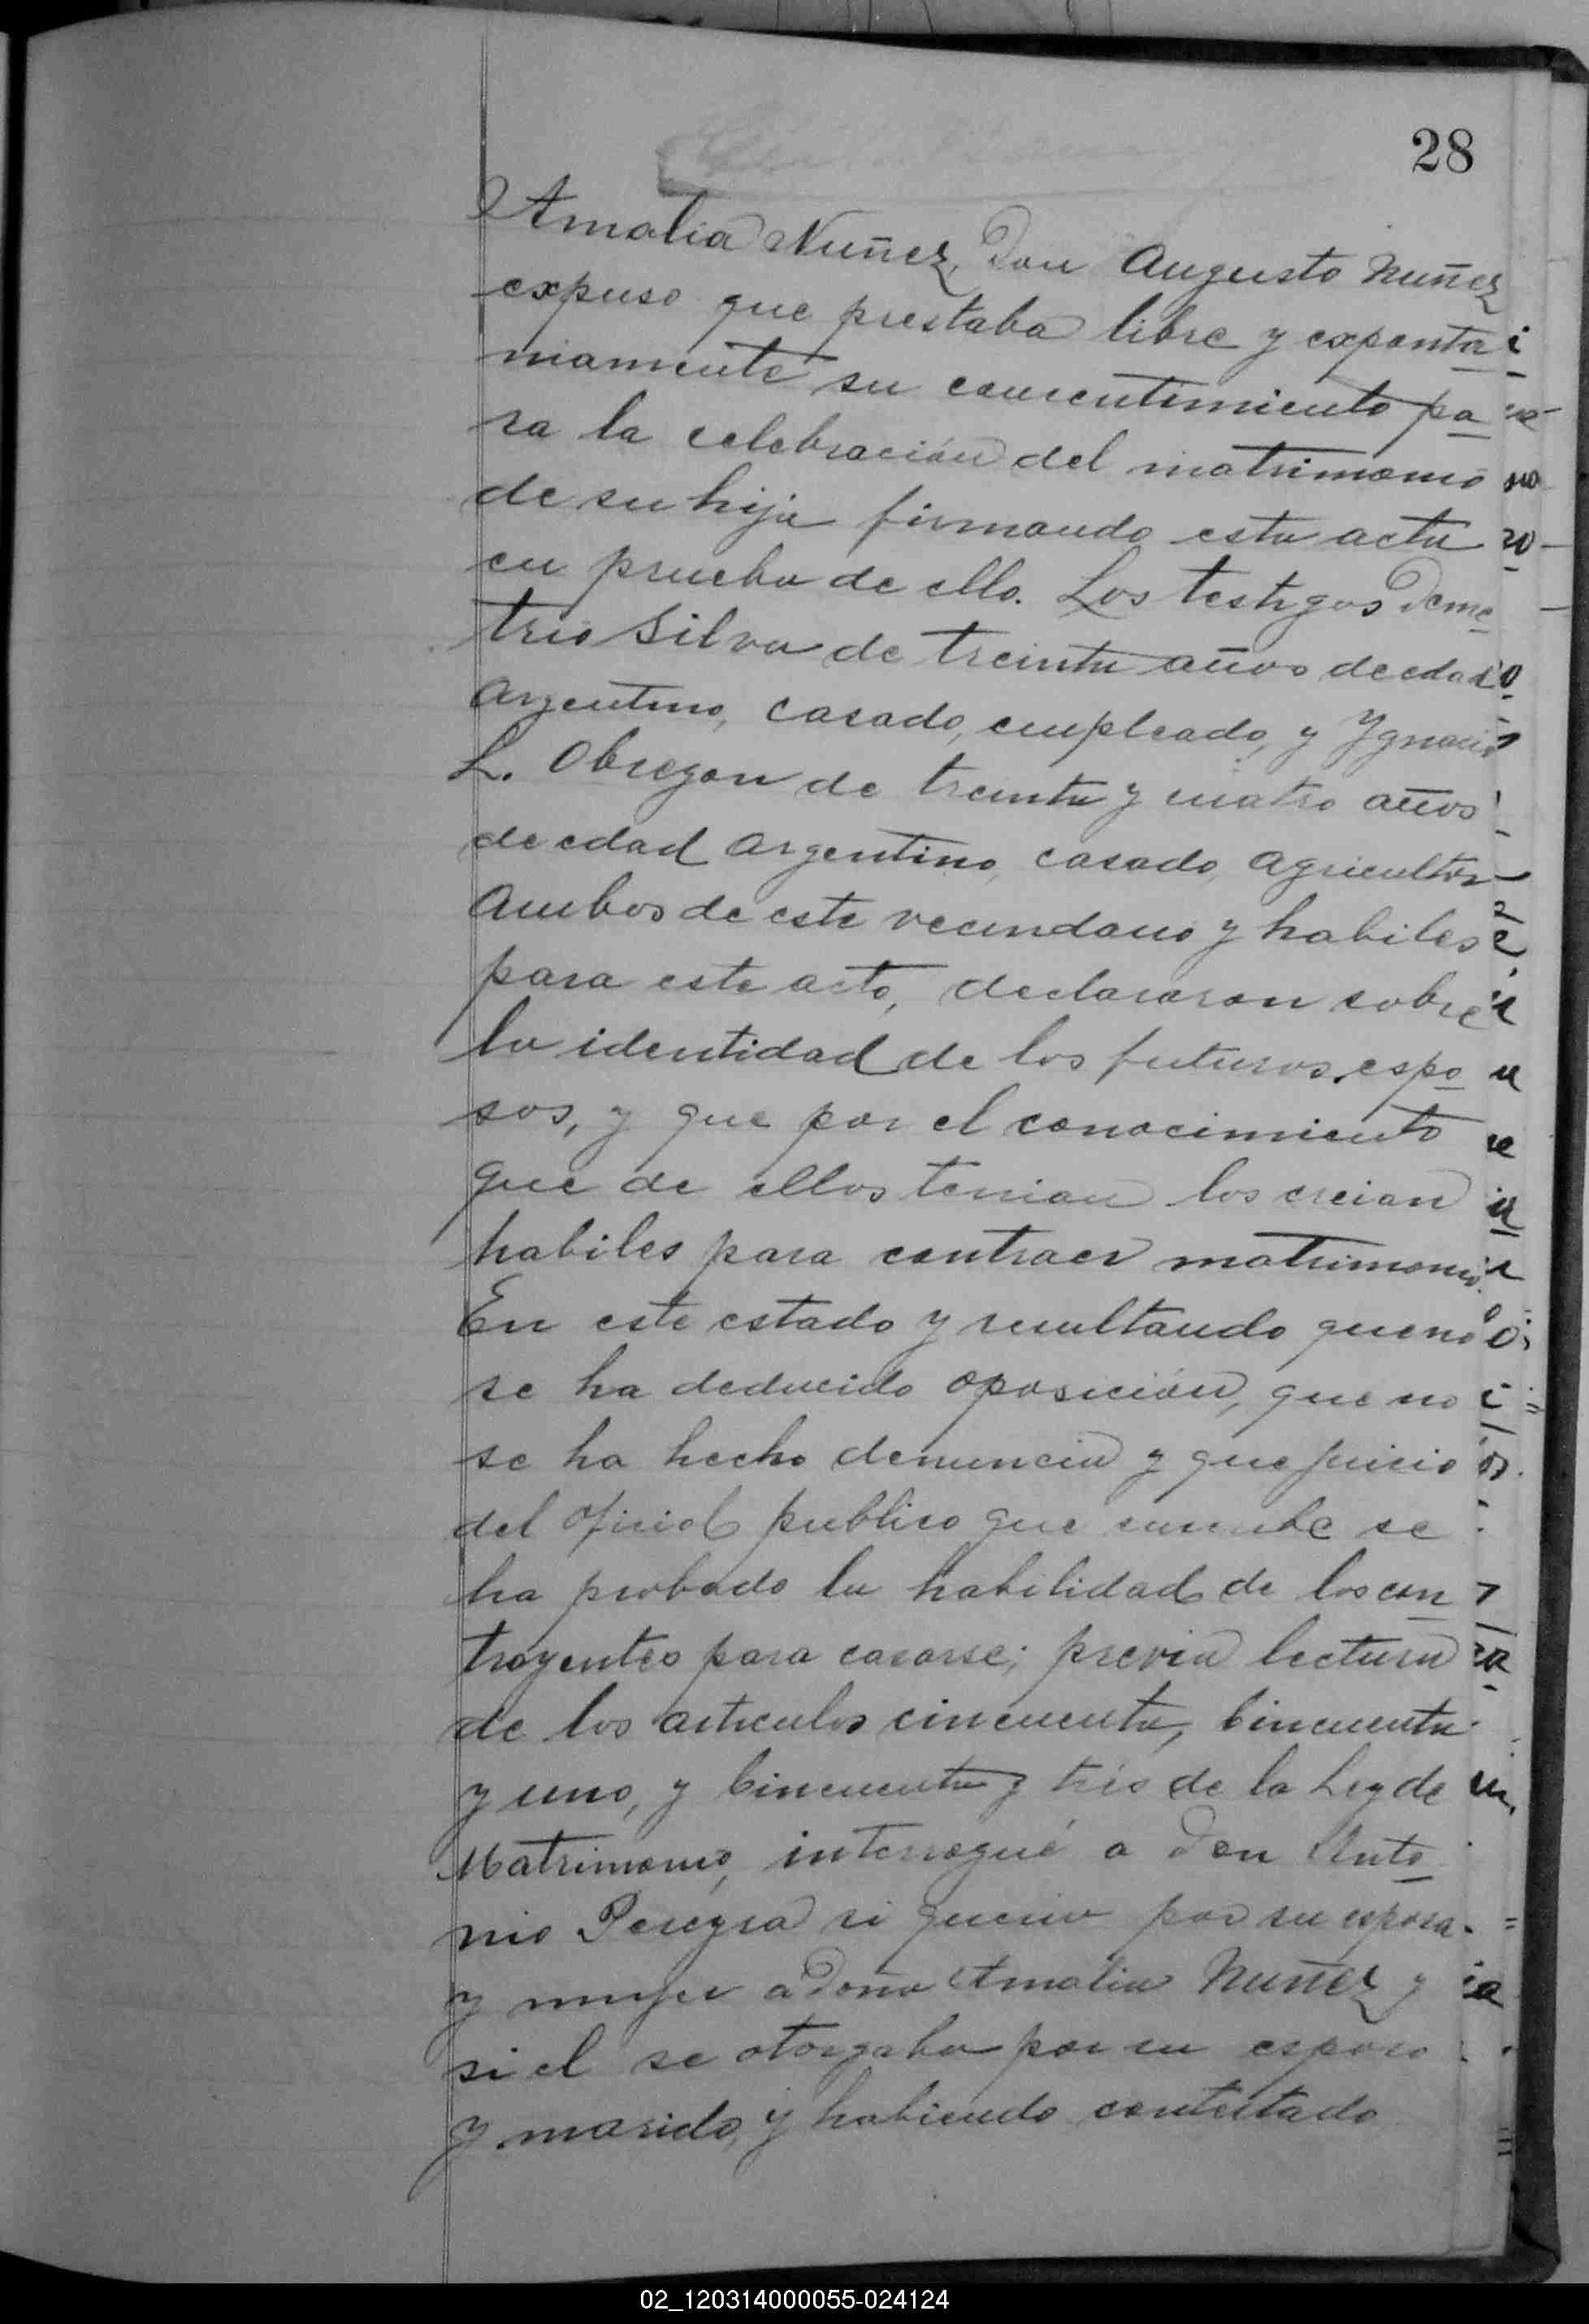 28
Amalia Nuñez, Don Augusto Nuñez
expuso que prestaba libre y exponta
niamente su concentimiento pa
ra la celebración del matrimonio
de su hija firmando esta acta
en prueba de ello. Los testigos Deme
trio Silva de treinta años de edad
Argentino, casado, empleado, y Ygnacio
L. Obregon de treinta y cuatro años
de edad Argentino, casado, Agricultor
Ambos de este vecindario y habiles
para este acto, declararon sobre
la identidad de los futuros espo
sos, y que por el conocimiento
que de ellos tenian los creian
habiles para contraer matrimonio.
En este estado y resultando que no
se ha deducido oposición, que no
se ha hecho denuncia y que juicio
del oficial publico que suscribe se
ha probado la habilidad de los con
trayentes para casarse; previa lectura
de los articulos cincuenta, Cincuenta
y uno, y Cincuenta y tres de la Ley de
Matrimonio, interrogué a Don Anto
nio Pereyra si queria por su esposa
y mujer a Doña Amalia Nuñez y
si el se otorgaba por su esposo
y marido, y habiendo contestado
02_120314000055-024124